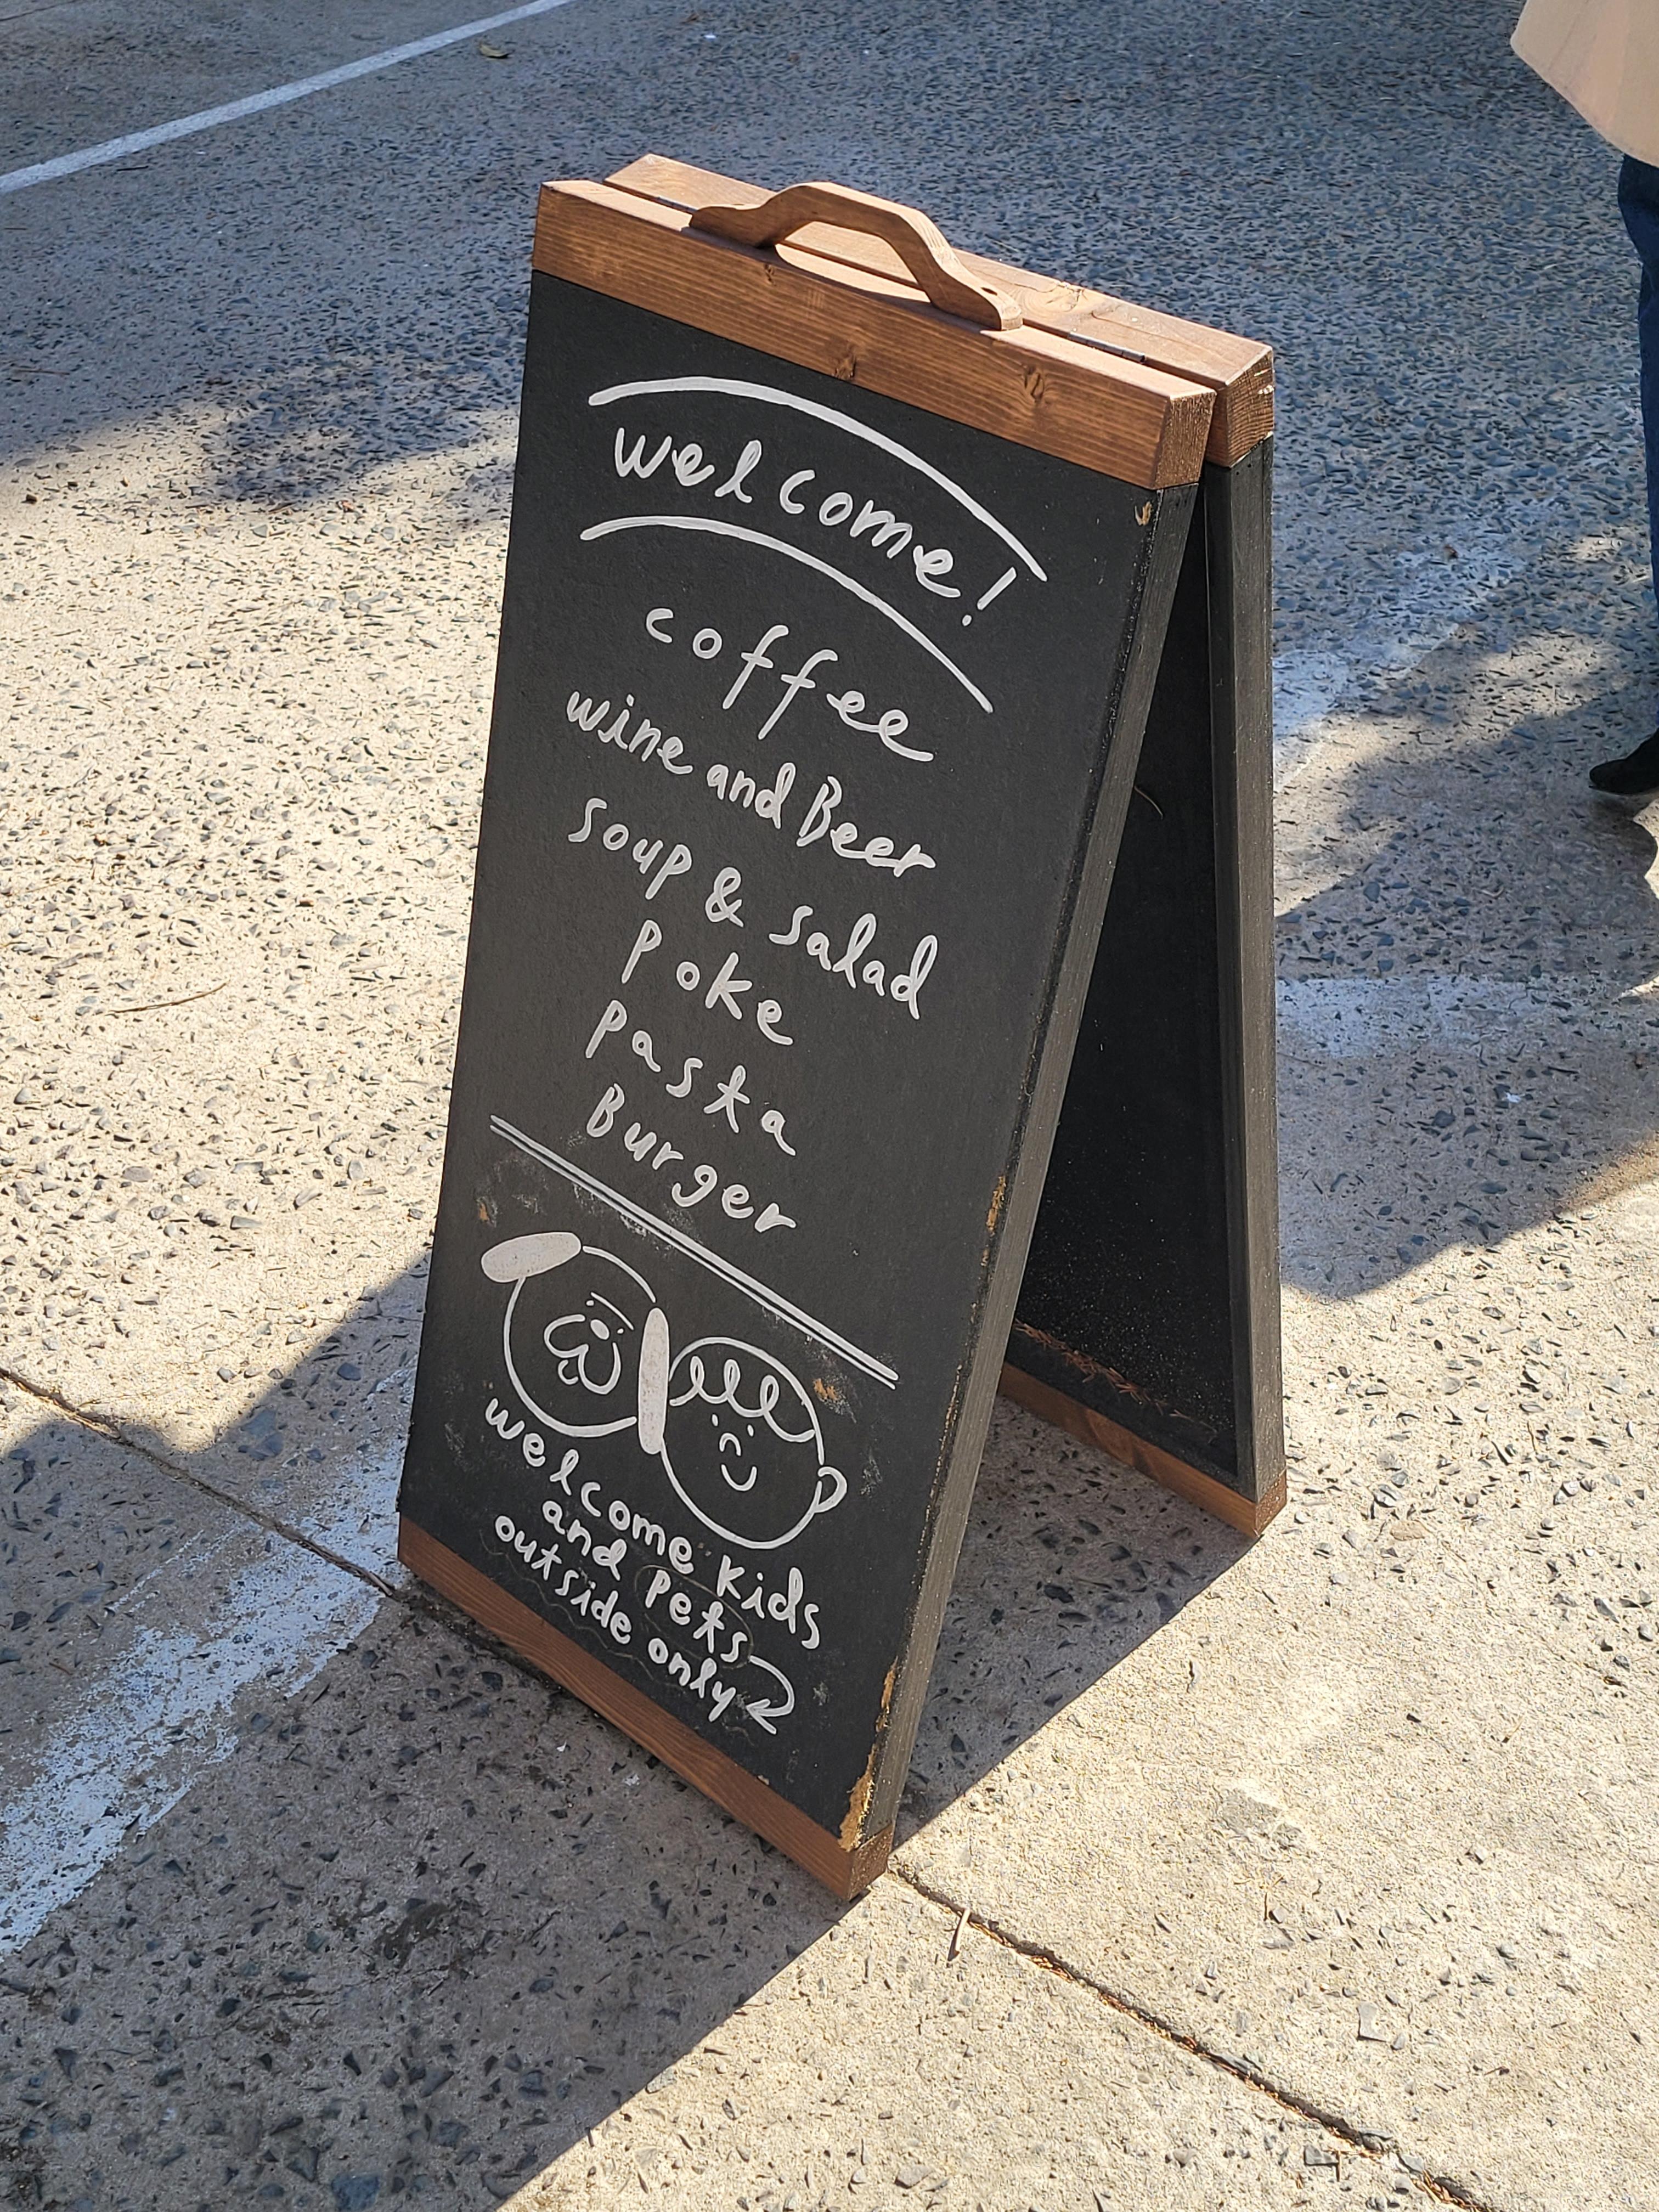 welcome!
coffee
wine and Beer
soup & salad
poke
pasta
Burger
welcome kids
and pets
outside only